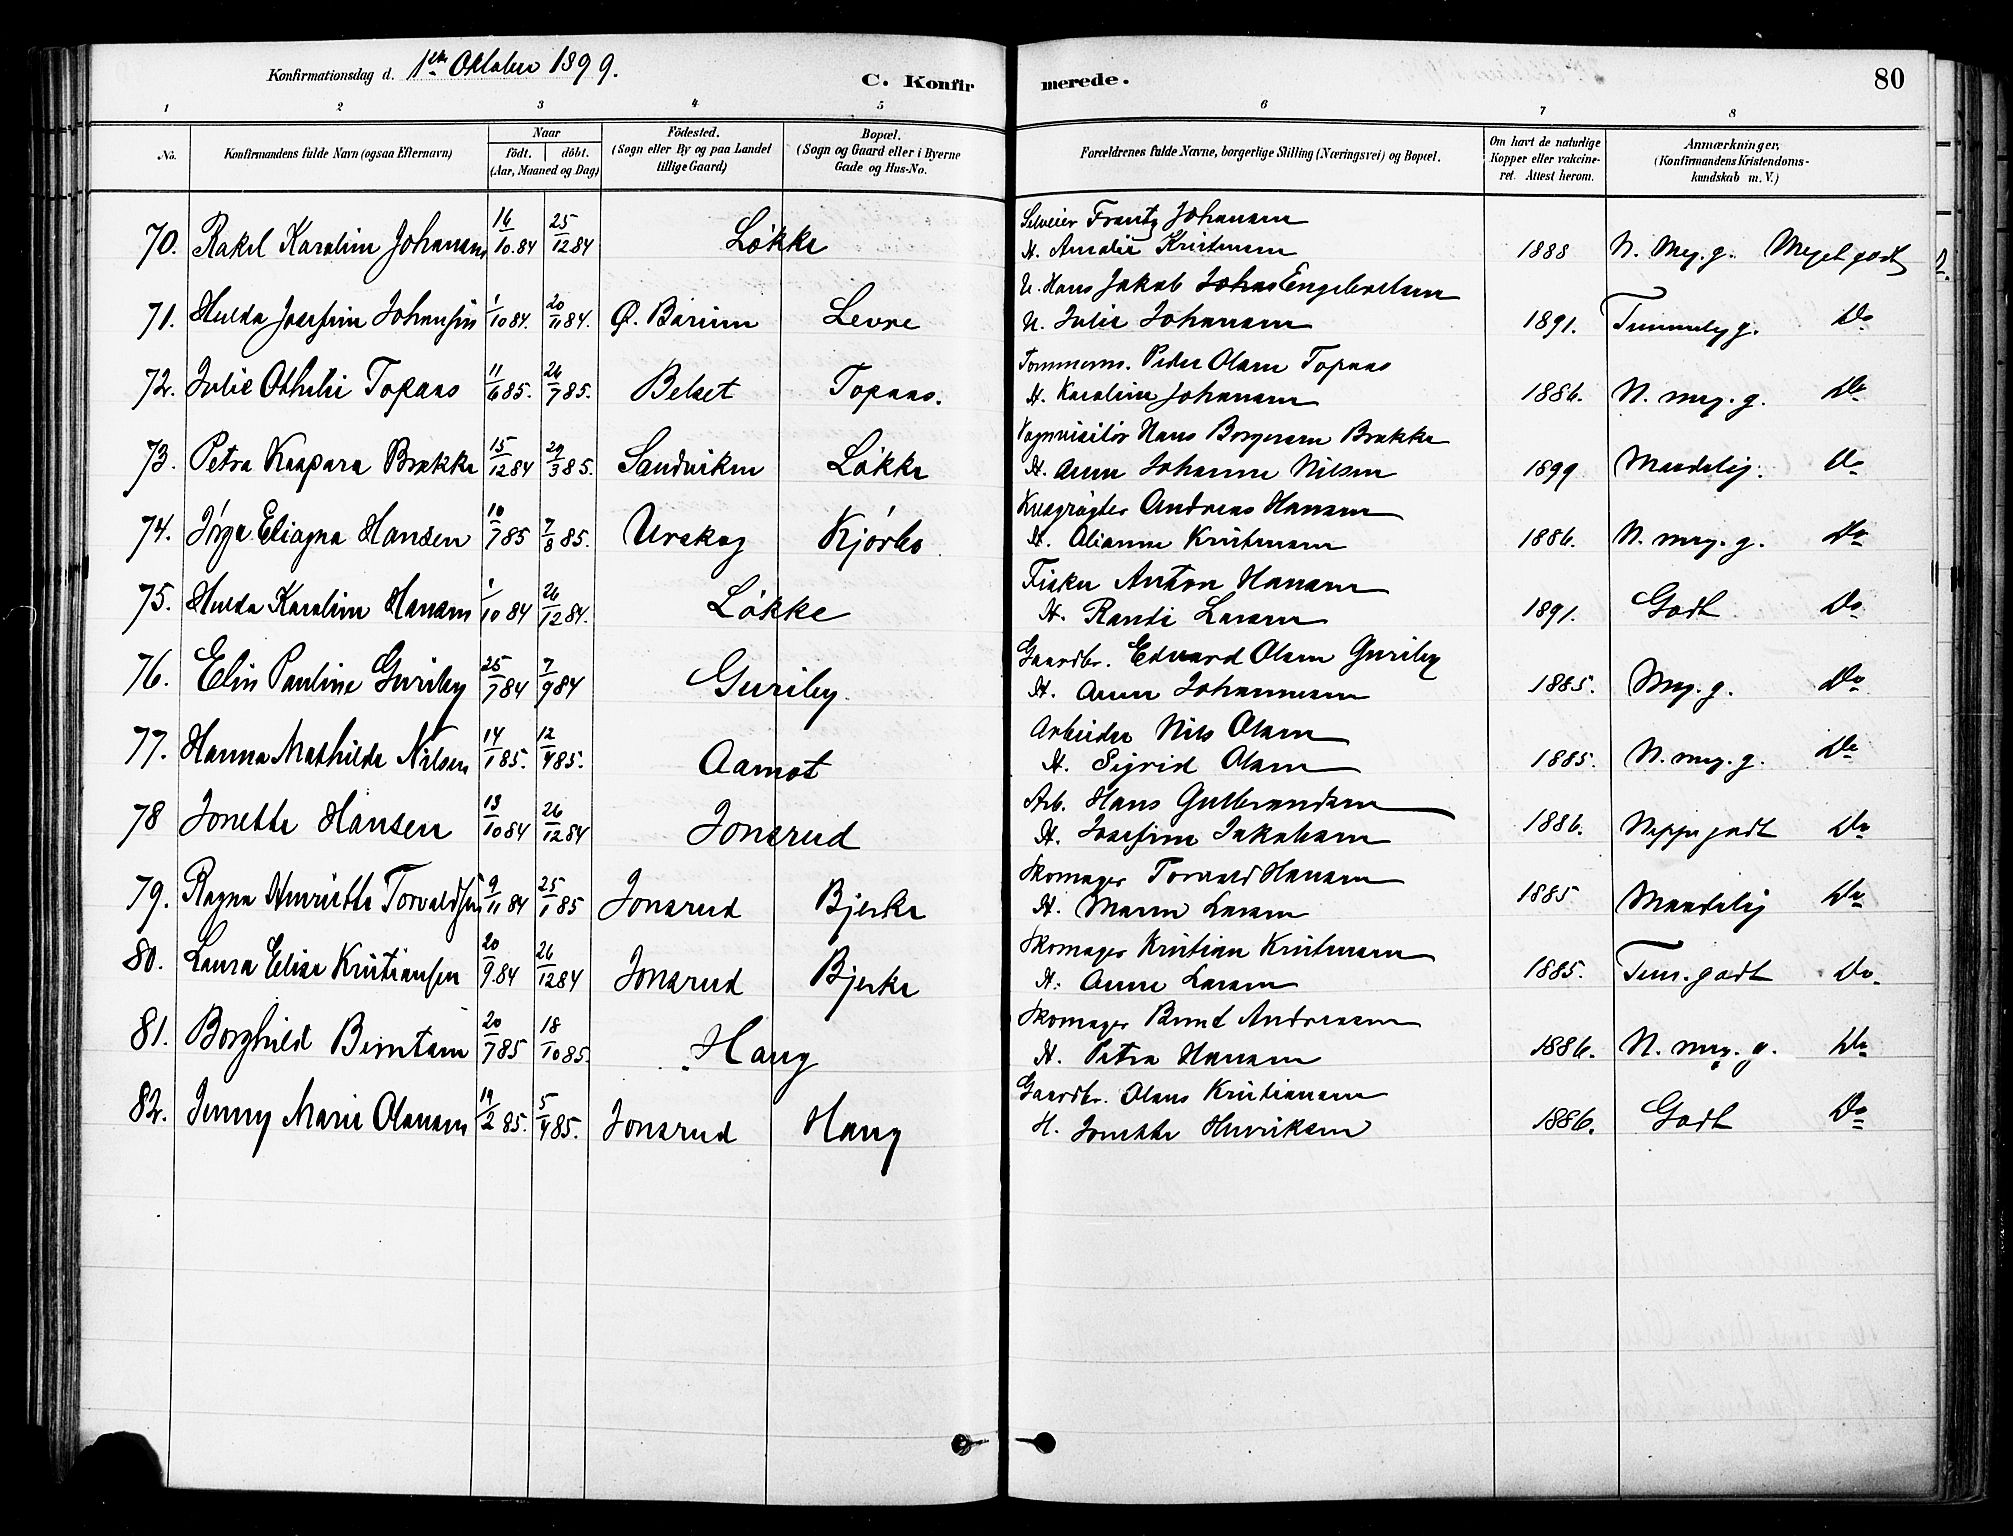 Konfirmationsdag d. 1ste Oktober 1899.
C. Konfirmerede.
80
1 2 3 4 5 6 7 8
No.
Konfirmandens fulde Navn (ogsaa Efternavn)
Naar
födt. döbt.
(Aar, Maaned og Dag)
Födested.
(Sogn eller By og paa Landet
tillige Gaard)
Bopæl.
(Sogn og Gaard eller i Byerne
Gade og Hus-No.
Forældrenes fulde Navne, borgerlige Stilling (Næringsvei) og Bopæl.
Om havt de naturlige
Kopper eller vakcine-
ret. Attest herom.
Anmærkninger,
(Konfirmandens Kristendoms-
kundskab m. V.)
70. Rakel Karoline Johansen 16/10.84 25/12 84 Løkke
Selveier Frantz Johansen
H. Amalie Kristensen 1888 N. Meg. g. Meget godt
71. Hulda Josefine Johansen 1/10 84. 20/11 84. Ø. Bærum Levre
U. Hans Jakob Johns Engebretsen
U. Julie Johansen 1891. Temmelig g. Do
72. Julie Othelie Topaas 11/6 85. 26/7 85. Belset Topaas.
Tømmerm. Peder Olsen Topaas
H. Karoline Johansen 1886. N. meg. g. Do
73. Petra Kaspara Brække 15/12 84 29/3 85. Sandviken Løkke
Vognvisitør Hans Borgersen Brække
H. Anne Johanne Nilsen 1899 Maadelig. Do
74. Jørga Eliagna Hansen 10/7 85 7/8 85. Urskog Kjørbo
Kusgrøgter Andreas Hansen
H. Olianne Kristensen 1886. N. meg. g. Do
75. Hulda Karoline Hansen 1/10 84 26/12 84. Løkke
Fisker Anton Hansen
H. Randi Larsen 1891. Godt Do
76. Elin Pauline Guriby 25/7 84 7/9 84 Guriby.
Gaardbr. Edvard Olsen Guriby
H. Anne Johannesen 1885. Meg. g. Do
77. Hanna Mathilde Nilsen 14/1 85. 12/4 85. Aamot
Arbeider Nils Olsen
H. Sigrid Olsen 1885. N. meg. g. Do
78 Jonette Hansen 13/10 84 26/12 84 Jonsrud
Arb. Hans Gulbrandsen
H. Josefine Jakobsen 1886. Neppe godt Do
79. Ragna Henriette Torvaldsen 9/11 84 25/1 85 Jonsrud Bjerke
Skomager Torvald Hansen
H. Maren Larsen 1885 Maadelig Do
80. Laura Elise Kristiansen 20/9.84 26/12 84 Jonsrud Bjerke
Skomager Kristian Kristensen
H. Anne Larsen 1885. Tem. godt Do.
81. Borghild Berntsen 20/7 85 18/10 85. Haug
Skomager Bernt Andreasen
H. Petra Hansen 1886. N. meg. g. Do
82. Jenny Marie Olausen 19/2 85. 5/4 85. Jonsrud Haug
Gaardbr. Olaus Kristiansen
H. Jonette Henriksen 1886. Godt Do